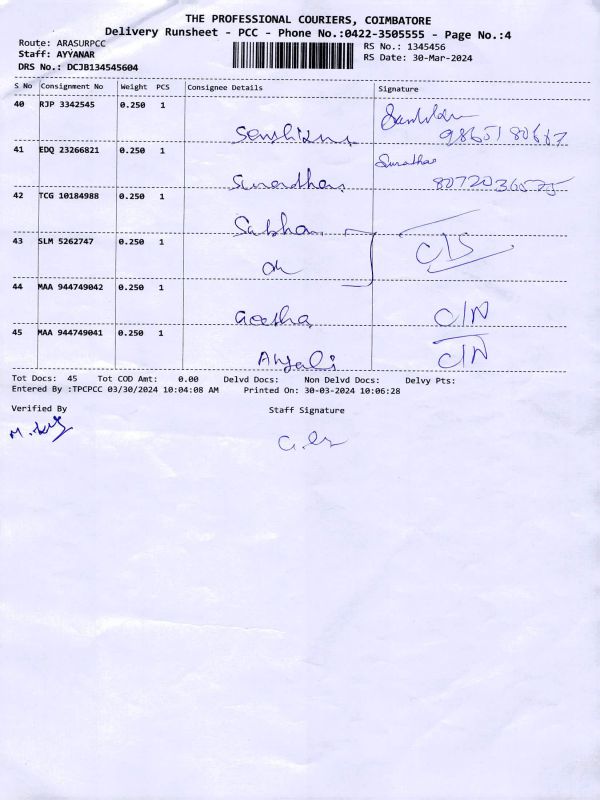 THE PROFESSIONAL COURIERS, COIMBATORE
Delivery Runsheet - PCC - Phone No.:0422-3505555 - Page No.:4
Route: ARASURPCC RS No.: 1345456
Staff: AYYANAR RS Date: 30-Mar-2024
DRS No.: DCJB134545604
S No Consignment No Weight PCS Consignee Details Signature
40 RJP 3342545 0.250 1
9865180667
41 EDQ 23266821 0.250 1
8072036575
42 TCG 10184988 0.250 1
43 SLM 5262747 0.250 1 C/S
44 MAA 944749042 0.250 1
Geetha C/N
45 MAA 944749041 0.250 1 C/N
Anjali
Tot Docs: 45 Tot COD Amt: 0.00 Delvd Docs: Non Delvd Docs: Delvy Pts:
Entered By :TPCPCC 03/30/2024 10:04:08 AM Printed On: 30-03-2024 10:06:28
Verified By Staff Signature